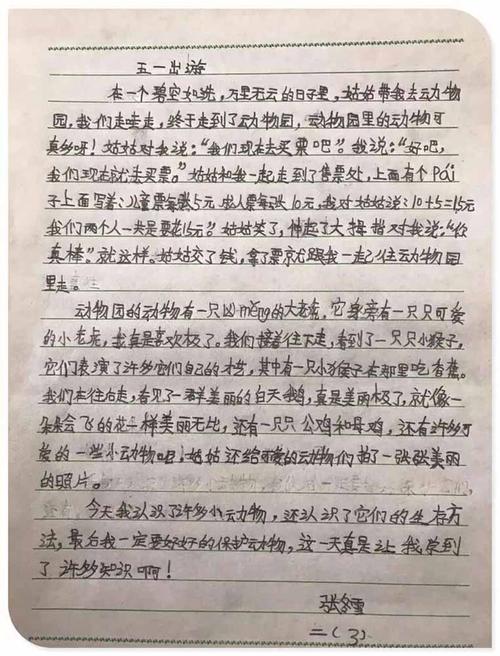 五一出游
在一个碧空如洗，万里无云的日子里，姑姑带我去动物
园，我们走哇走，终于走到了动物园，动物园里的动物可
真多呀！姑姑对我说："我们现在去买票吧"。我说："好吧，
我们现在就去买票。"姑姑和我一起走到了售票处，上面有个pái
子上面写着：儿童票每张5元，成人票每张10元，我对姑姑说：10+5=15元
我们两个人一共是要花15元？姑姑笑了，伸起了大拇指对我说："你
真棒"。就这样。姑姑交了钱，拿了票就跟我一起往动物园
里走。
动物园的动物有一只凶měng的大老虎，它身旁有一只只可爱
的小老虎，我真是喜欢极了。我们接着往下走，看到了一只只小猴子，
它们表演了许多它们自己的才华，其中有一只小猴子在那里吃香蕉。
我们在往右走，看见了一群美丽的白天鹅，真是美丽极了，就像一
朵朵会飞的花一样美丽无比，还有一只只公鸡和母鸡，还有许多可
爱的一些小动物呢！姑姑还给可爱的动物们拍了一张张美丽
的照片。
今天我认识了许多小动物，还认识了它们的生存方
法，最后我一定要好好的保护动物，这一天真是让我学到
了许多知识啊！
张雪
二（3）